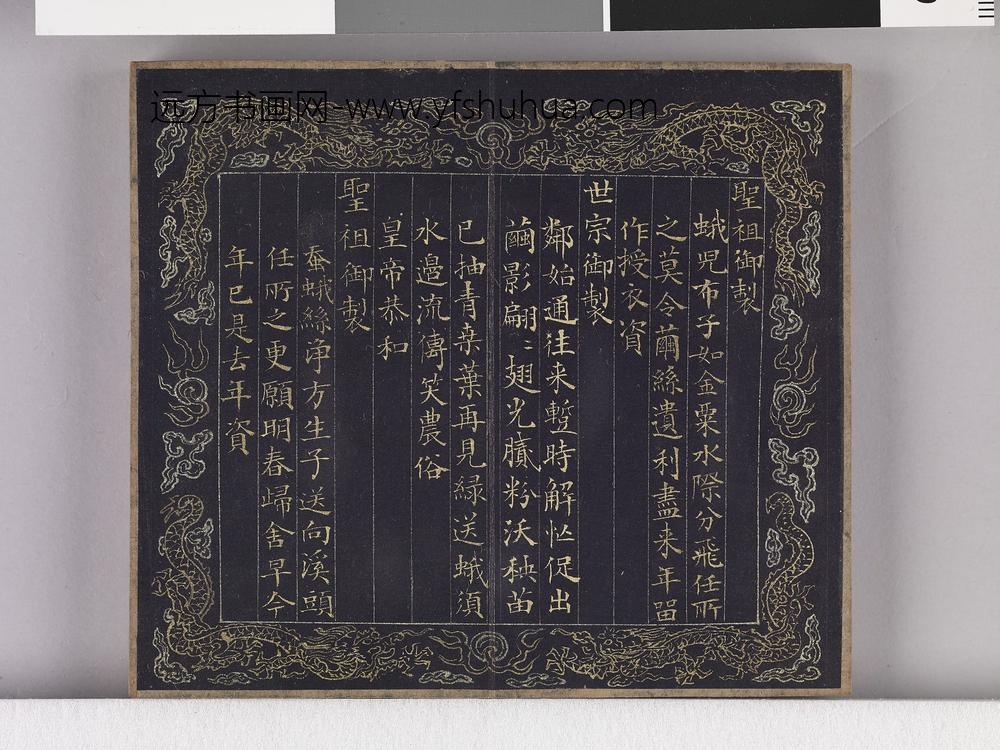 远方书画网-www.yfshuhua.com
聖祖御製
蛾児布子如金粟水際分飛任所
之莫令繭絲遺利盡来年留
作授衣資
世宗御製
鄰始通往来蹔時解忙促出
繭影翩〻翅光膩粉沃秧苗
已抽青桒葉再見緑送蛾須
水邊流傳笑農俗
皇帝恭和
聖祖御製
蚕蛾絲浄方生子送向溪頭
任所之更願明春歸舍早今
年已是去年資